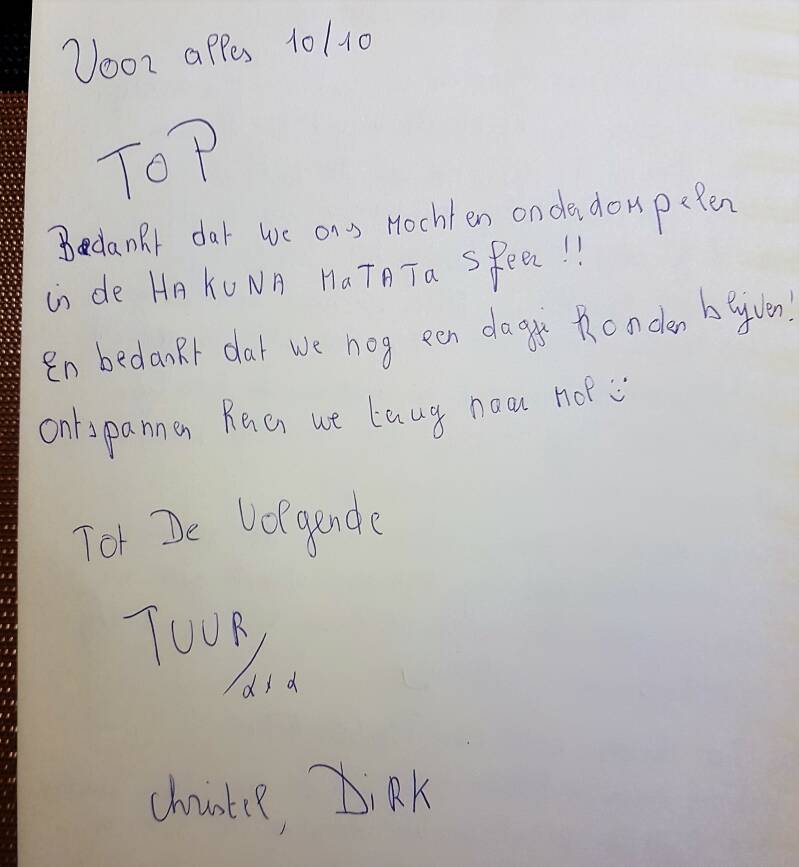 Voor alles 10/10
TOP
Bedankt dat we ons mochten onderdompelen
in de HAKUNA MaTATa sfeer !!
En bedankt dat we nog een dagje konden blijven!
ontspannen keren we terug naar Mol
Tot De volgende
TUUR
xxx
Christel, DiRK